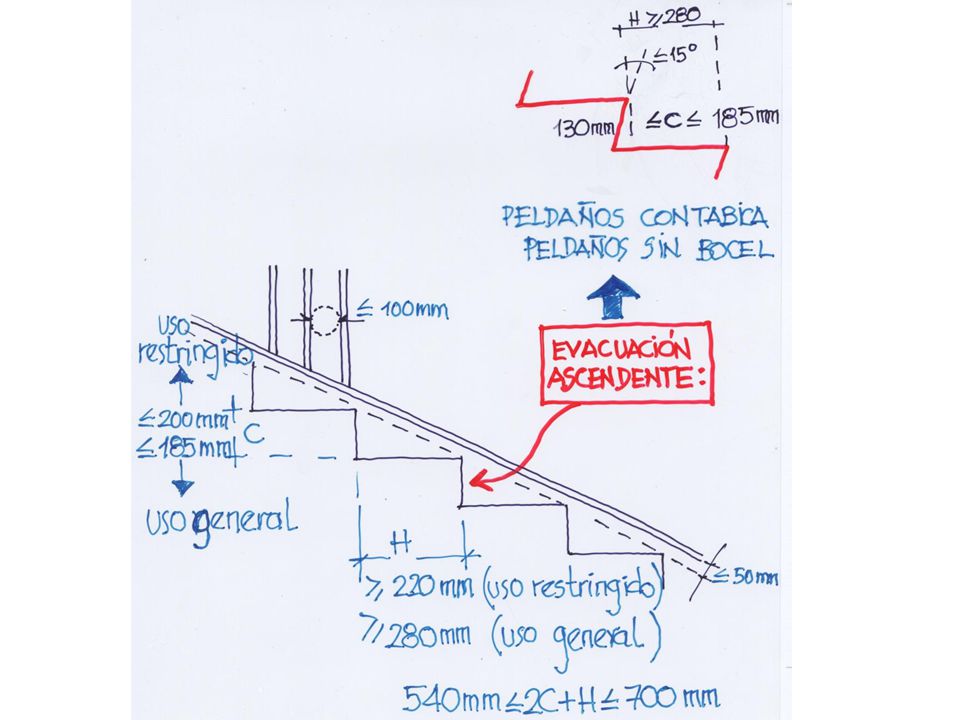 H ≥ 280
≤ 15º
130mm ≤ C ≤ 185mm
PELDAÑOS CON TABICA
PELDAÑOS SIN BOCEL
≤ 100mm
EVACUACIÓN
ASCENDENTE:
uso
restringido
≤ 200mm
≤ 185mm
C
uso general
H
≥ 220mm (uso restringido)
≥ 280mm (uso general)
≤ 50mm
540mm ≤ 2C + H ≤ 700mm